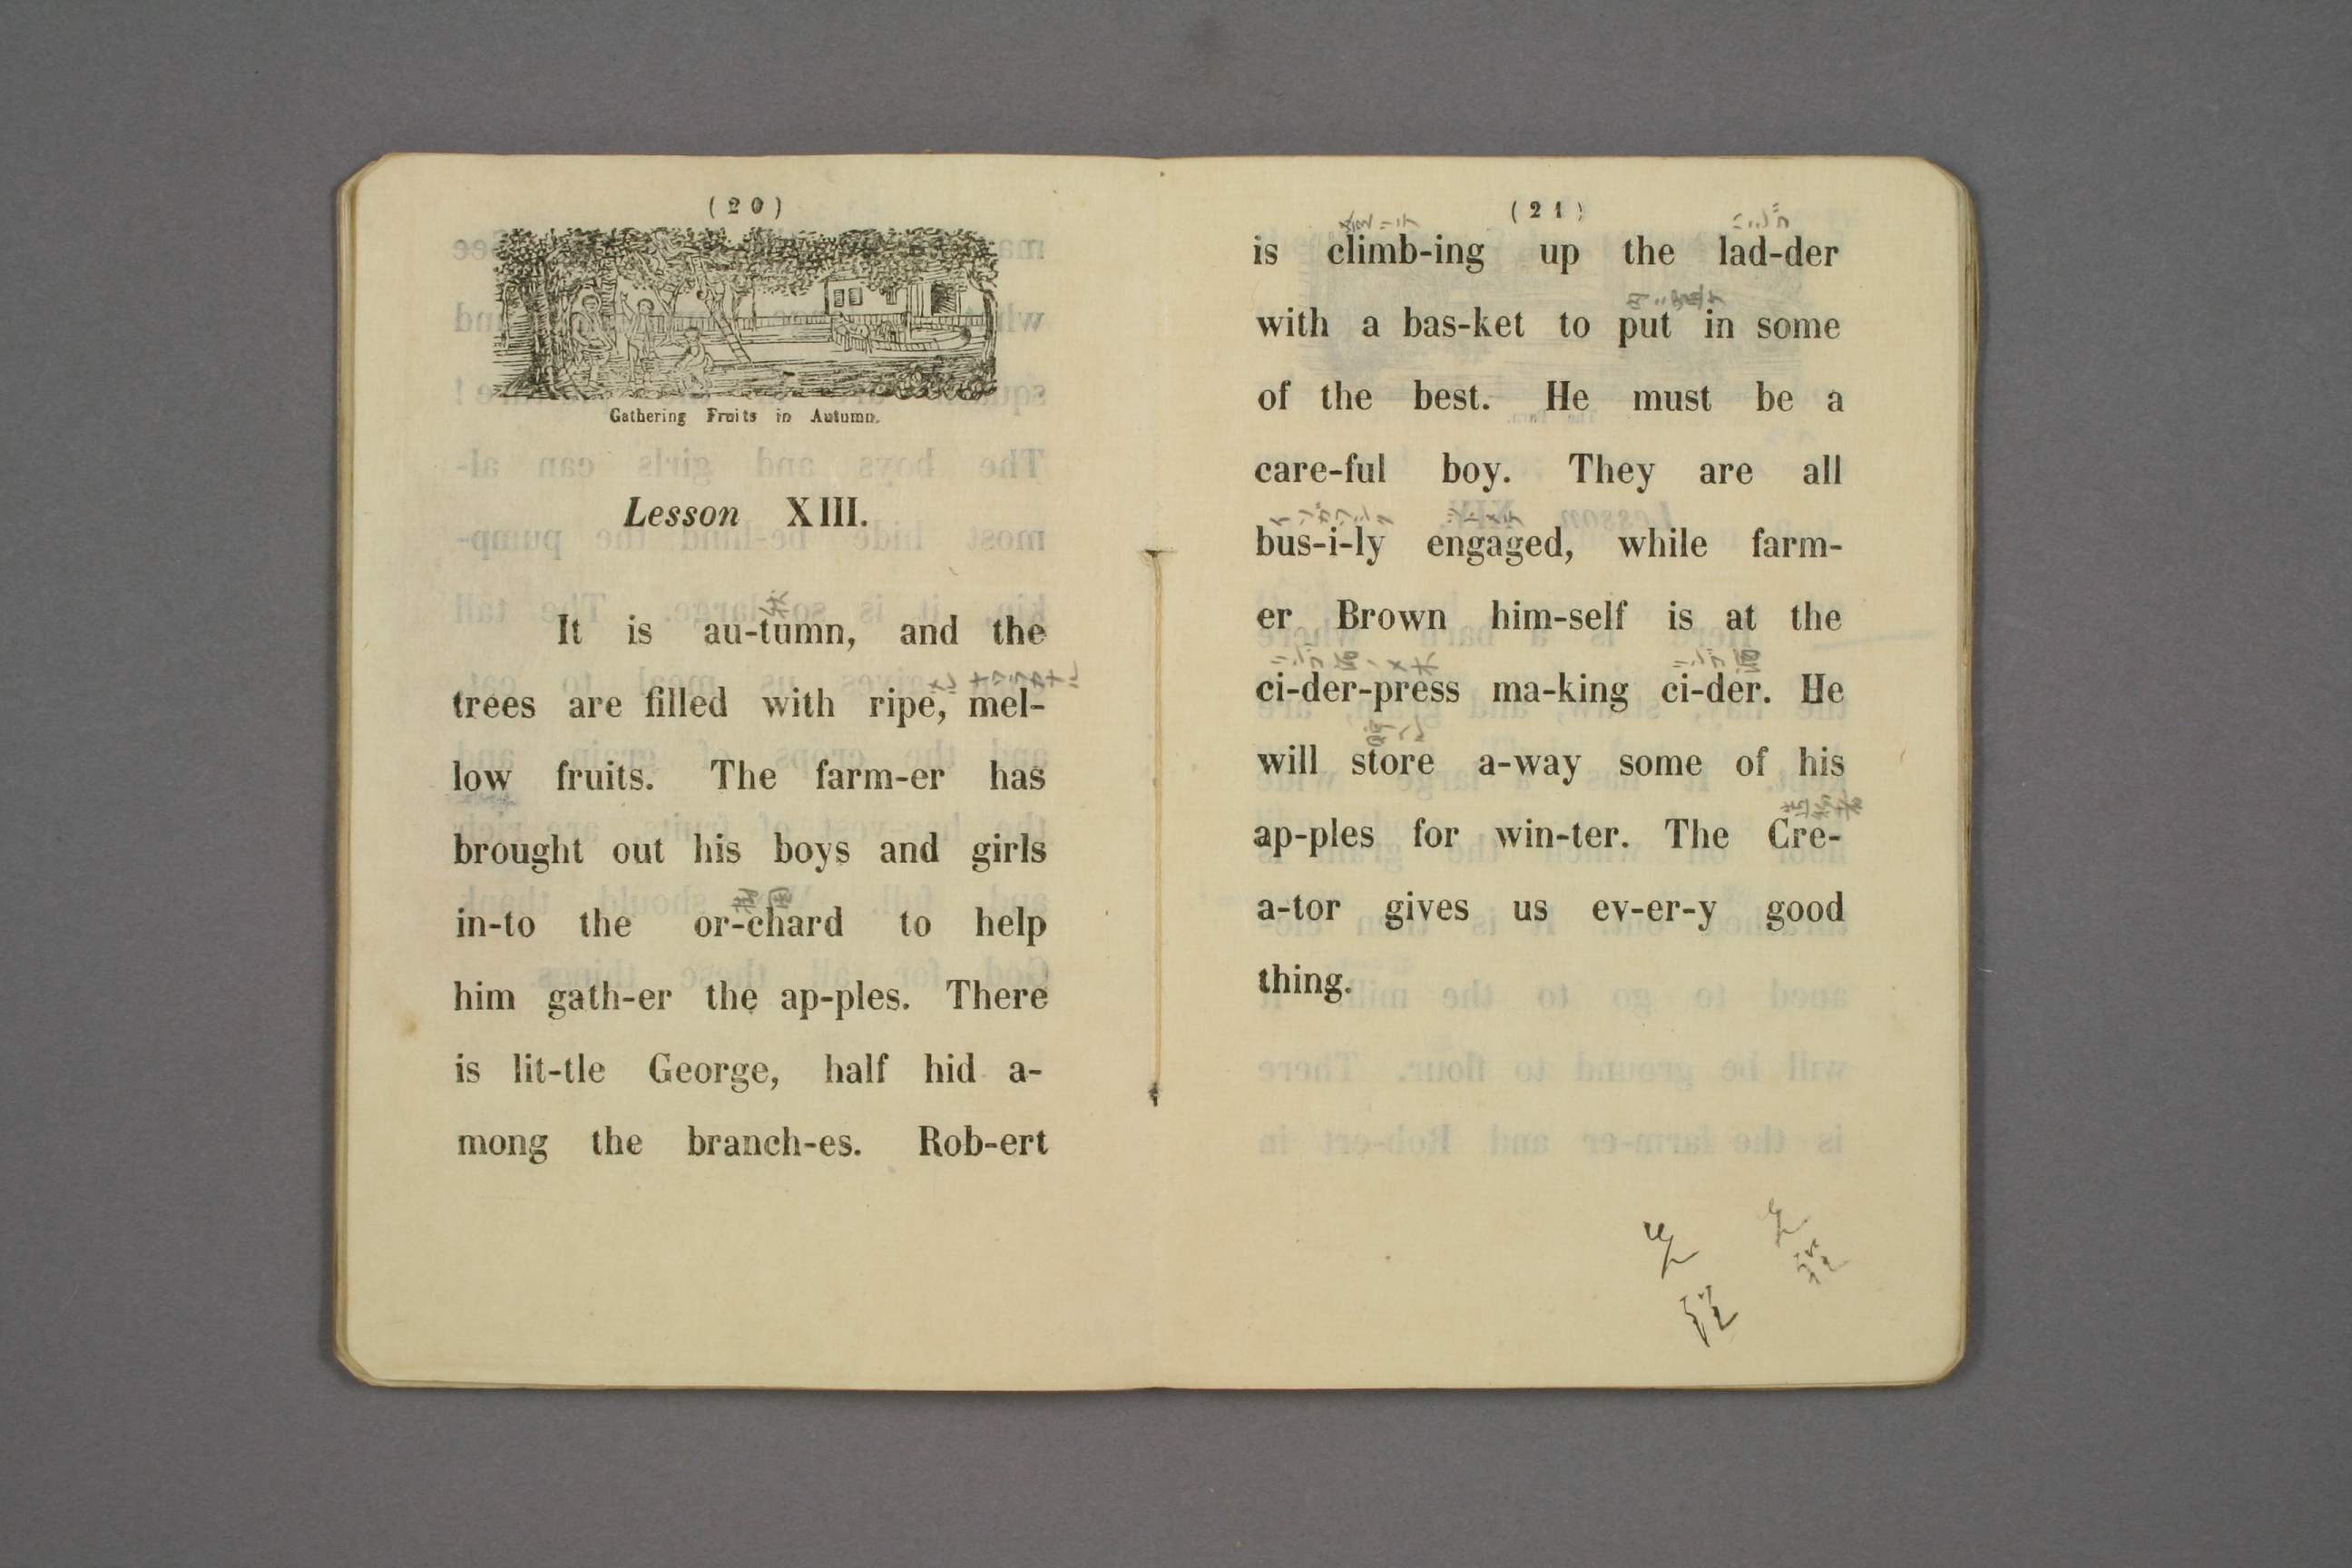 (20)
Gathering Fruits in Autumn.
Lesson XIII.
It is au-tumn, and the
trees are filled with ripe, mel-
low fruits. The farm-er has
brought out his boys and girls
in-to the or-chard to help
him gath-er the ap-ples. There
is lit-tle George, half hid a-
mong the branch-es. Rob-ert
(21)
is climb-ing up the lad-der
with a bas-ket to put in some
of the best. He must be a
care-ful boy. They are all
bus-i-ly engaged, while farm-
er Brown him-self is at the
ci-der-press ma-king ci-der. He
will store a-way some of his
ap-ples for win-ter. The Cre-
a-tor gives us ev-er-y good
thing.